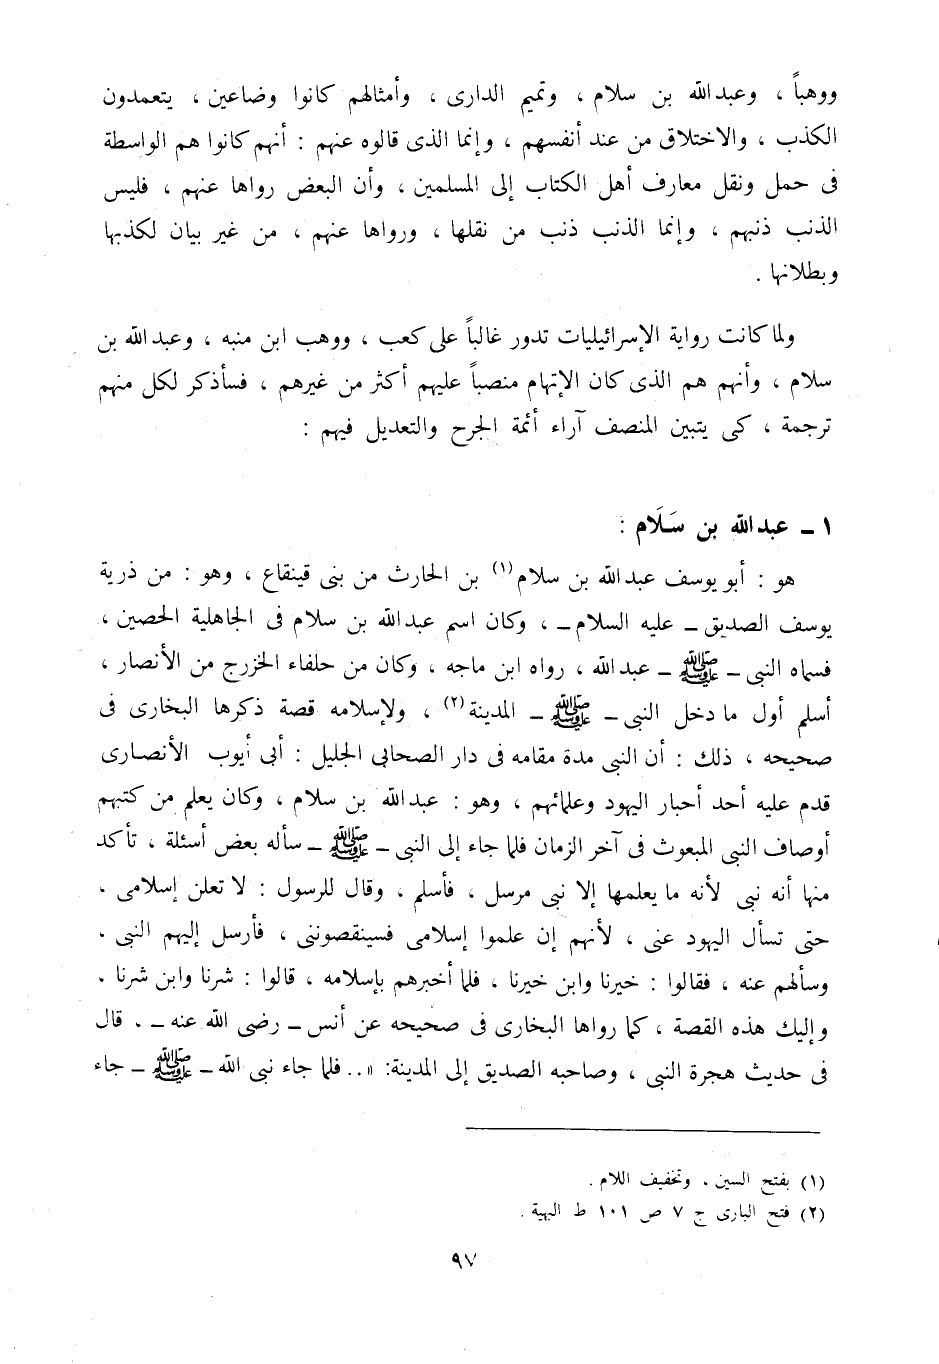 ووهباً ، وعبدالله بن سلام ، وتميم الدارى ، وأمثالهم كانوا وضاعين ، يتعمدون
الكذب ، والاختلاق من عند أنفسهم ، وإنما الذى قالوه عنهم : أنهم كانوا هم الواسطة
فى حمل ونقل معارف أهل الكتاب إلى المسلمين ، وأن البعض رواها عنهم ، فليس
الذنب ذنبهم ، وإنما الذنب ذنب من نقلها ، ورواها عنهم ، من غير بيان لكذبها
وبطلانها .
ولما كانت رواية الإسرائيليات تدور غالباً على كعب ، ووهب ابن منبه ، وعبدالله بن
سلام ، وأنهم هم الذى كان الإتهام منصباً عليهم أكثر من غيرهم ، فسأذكر لكل منهم
ترجمة ، كى يتبين المنصف آراء أئمة الجرح والتعديل فيهم :
١ ـ عبدالله بن سَلَام :
هو : أبو يوسف عبدالله بن سلام(١) بن الحارث من بنى قينقاع ، وهو : من ذرية
يوسف الصديق ـ عليه السلام ـ ، وكان اسم عبدالله بن سلام فى الجاهلية الحصين ،
فسماه النبى ـ ﷺ ـ عبدالله ، رواه ابن ماجه ، وكان من حلفاء الخزرج من الأنصار ،
أسلم أول ما دخل النبى ـ ﷺ ـ المدينة(٢) ، ولإسلامه قصة ذكرها البخارى فى
صحيحه ، ذلك : أن النبى مدة مقامه فى دار الصحابى الجليل : أبى أيوب الأنصارى
قدم عليه أحد أحبار اليهود وعلمائهم ، وهو : عبدالله بن سلام ، وكان يعلم من كتبهم
أوصاف النبى المبعوث فى آخر الزمان فلما جاء إلى النبى ـ ﷺ ـ سأله بعض أسئلة ، تأكد
منها أنه نبى لأنه ما يعلمها إلا نبى مرسل ، فأسلم ، وقال للرسول : لا تعلن إسلامى ،
حتى تسأل اليهود عنى ، لأنهم إن علموا إسلامى فسينقصوننى ، فأرسل إليهم النبى ،
وسألهم عنه ، فقالوا : خيرنا وابن خيرنا ، فلما أخبرهم بإسلامه ، قالوا : شرنا وابن شرنا .
وإليك هذه القصة ، كما رواها البخارى فى صحيحه عن أنس ـ رضى الله عنه ـ . قال
فى حديث هجرة النبى ، وصاحبه الصديق إلى المدينة: «.. فلما جاء نبى الله ـ ﷺ ـ جاء
(١) بفتح السين ، وتخفيف اللام .
(٢) فتح البارى ج ٧ ص ١٠١ ط البهية .
٩٧